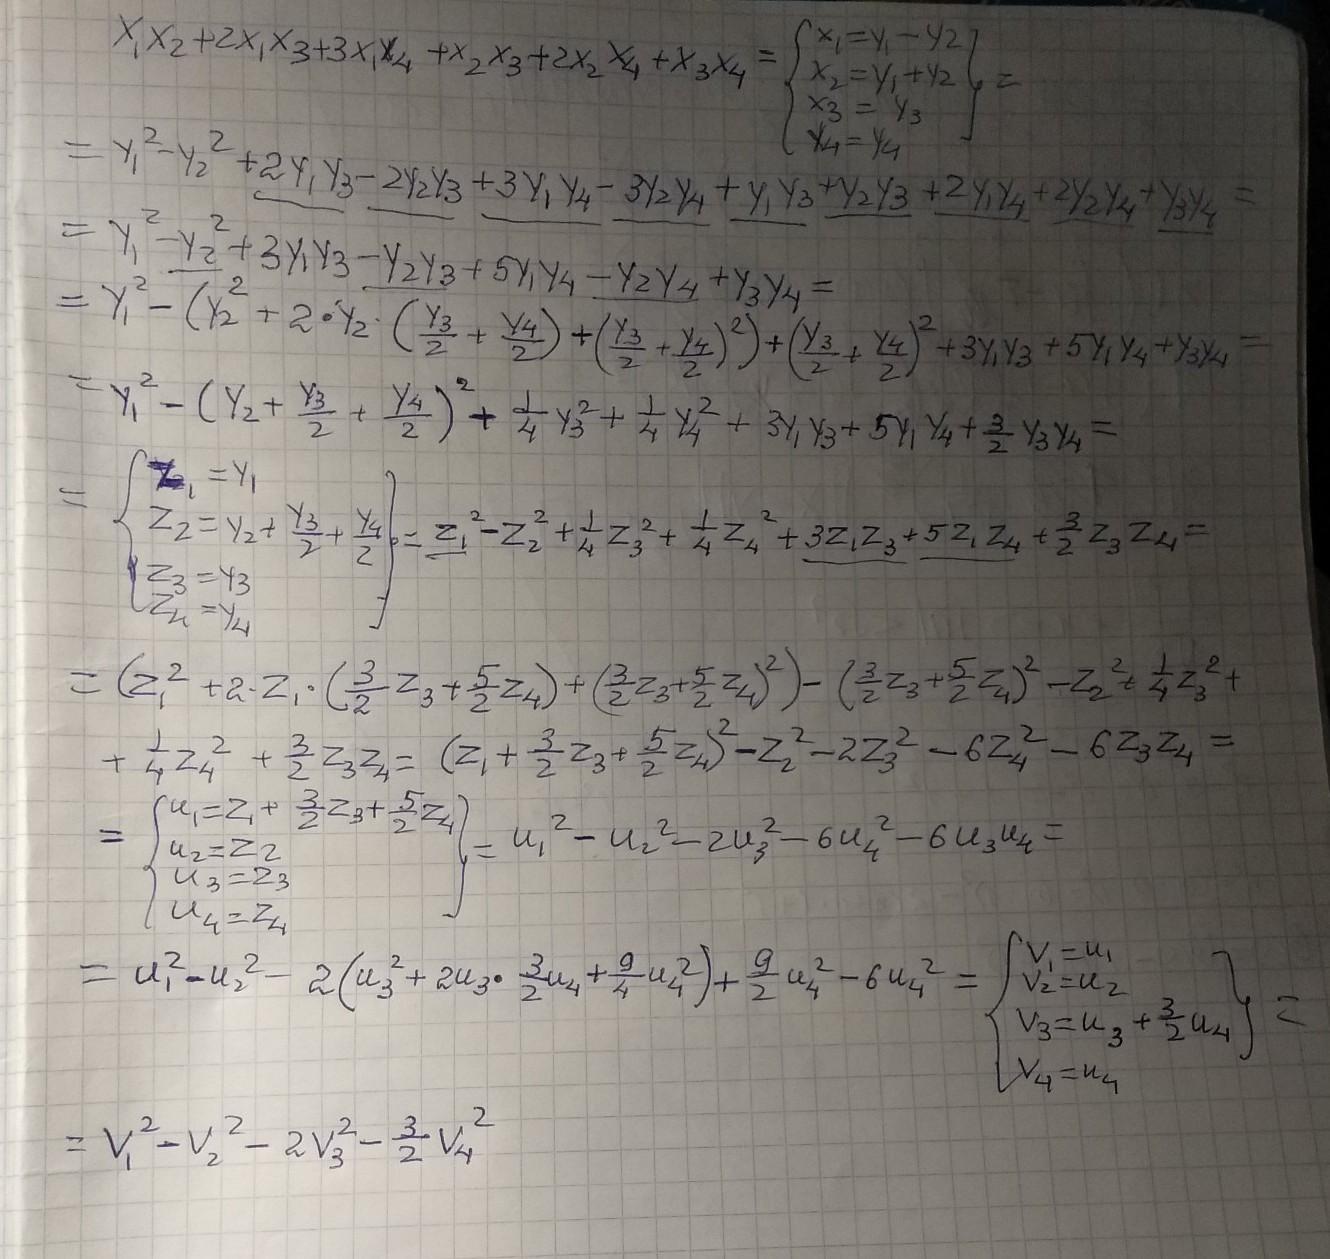 x₁x₂+2x₁x₃+3x₁x₄+x₂x₃+2x₂x₄+x₃x₄= { x₁=y₁-y₂
x₂=y₁+y₂
x₃=y₃
y₄=y₄ } =
= y₁²-y₂²+2y₁y₃-2y₂y₃+3y₁y₄-3y₂y₄+y₁y₃+y₂y₃+2y₁y₄+2y₂y₄+y₃y₄=
= y₁²-y₂²+3y₁y₃-y₂y₃+5y₁y₄-y₂y₄+y₃y₄=
= y₁²-(y₂²+2·y₂·(y₃/2+y₄/2)+(y₃/2+y₄/2)²)+(y₃/2+y₄/2)²+3y₁y₃+5y₁y₄+y₃y₄=
= y₁²-(y₂+y₃/2+y₄/2)²+1/4 y₃²+1/4 y₄²+3y₁y₃+5y₁y₄+3/2 y₃y₄=
= { z₁=y₁
z₂=y₂+y₃/2+y₄/2
z₃=y₃
z₄=y₄ } = z₁²-z₂²+1/4 z₃²+1/4 z₄²+3z₁z₃+5z₁z₄+3/2 z₃z₄=
= (z₁²+2·z₁·(3/2 z₃+5/2 z₄)+(3/2 z₃+5/2 z₄)²)-(3/2 z₃+5/2 z₄)²-z₂²+1/4 z₃²+
+1/4 z₄²+3/2 z₃z₄= (z₁+3/2 z₃+5/2 z₄)²-z₂²-2z₃²-6z₄²-6z₃z₄=
= { u₁=z₁+3/2 z₃+5/2 z₄
u₂=z₂
u₃=z₃
u₄=z₄ } = u₁²-u₂²-2u₃²-6u₄²-6u₃u₄=
= u₁²-u₂²-2(u₃²+2u₃·3/2 u₄+9/4 u₄²)+9/2 u₄²-6u₄²= { v₁=u₁
v₂=u₂
v₃=u₃+3/2 u₄
v₄=u₄ } =
= v₁²-v₂²-2v₃²-3/2 v₄²